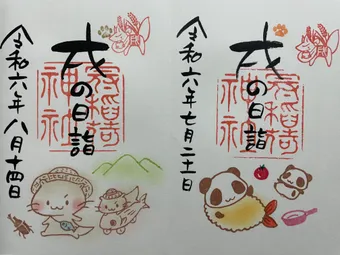 戌の日詣
神社
令和六年七月二十一日
戌の日詣
神社
令和六年八月十四日